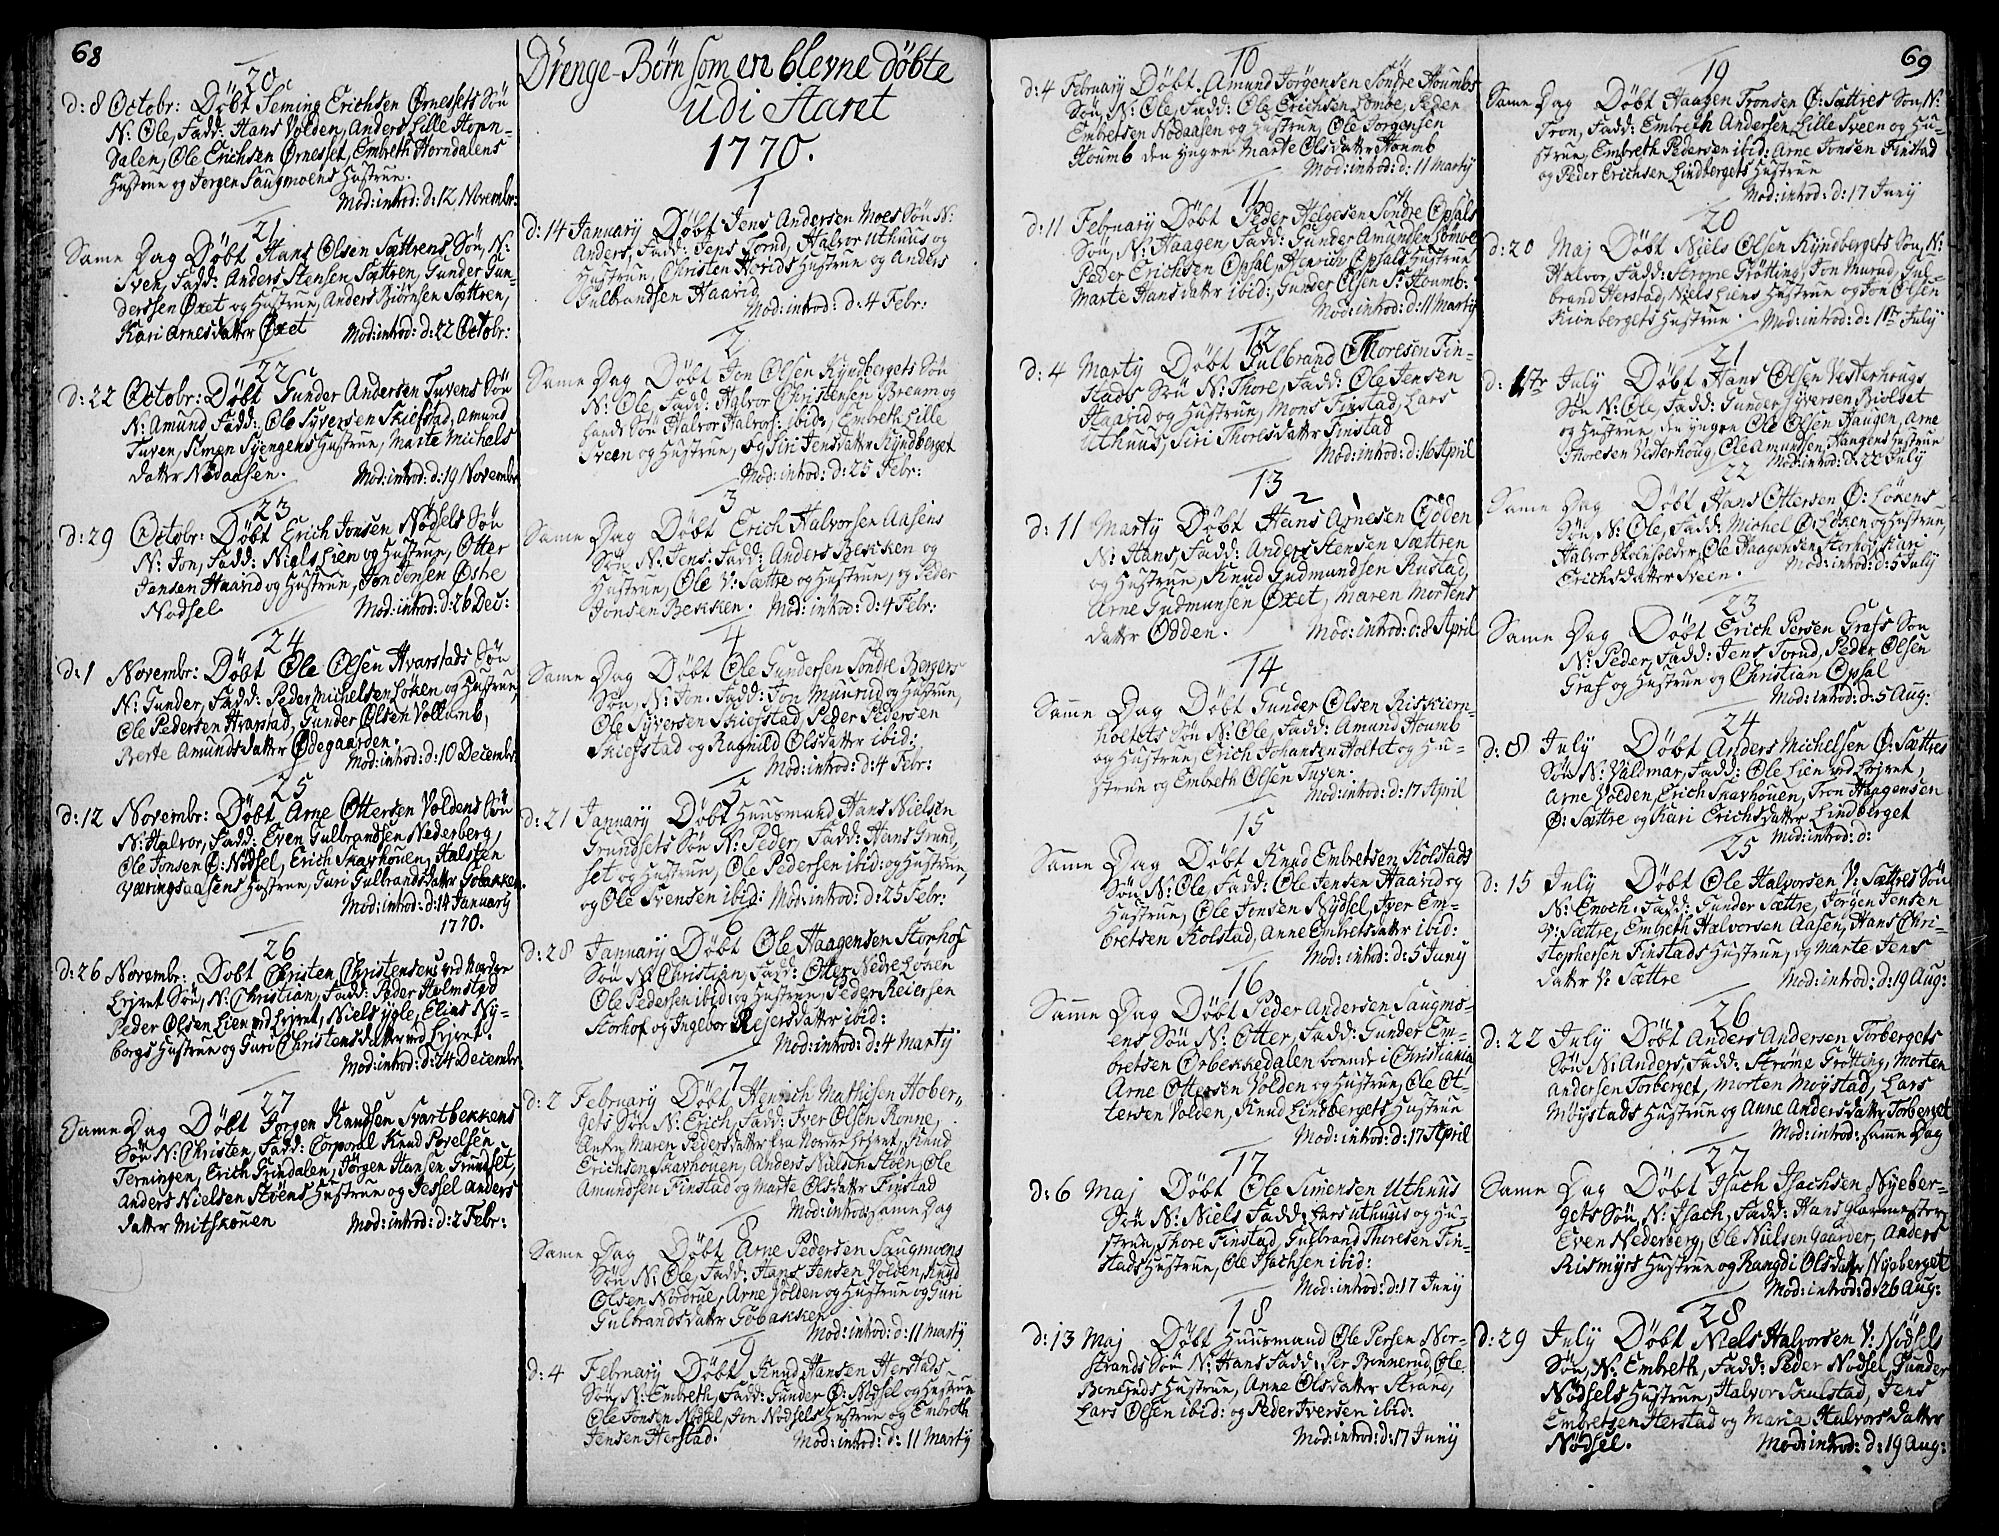 68
20
d: 8 Octobr: Døbt Seming Erichsen Ørnessets Søn
N: Ole, Fadd: Hans Volden, Anders Lille Hopn-
dalen, Ole Erichsen Ørnesset, Embreth Horndalens
Hustrue og Jørgen Saugmoens Hustrue.
Mod: introd: d: 12 Novembr:
21
Same Dag Døbt Hans Olsen Sættrens Søn, N:
Iven, Fadd: Anders Stensen Sættren, Gunder Gun-
dersen Øxet og Hustrue, Anders Biørnsen Sættren,
Kari Arnesdatter Øxet Mod: introd: d: 22 Octobr:
22
d: 22 Octobr: Døbt Gunder Andersen Tuvens Søn
N: Amund Fadd: Ole Syversen Skiefstad, Amund
Tuven, Simen Syengens Hustrue, Marte Michels
datter Nødaasen. Mod: introd: d: 19 Novembr
23
d: 29 Octobr: Døbt Erich Jonsen Nødsels Søn
N: Jon, Fadd: Niels Lien og Hustrue, Otter
Jensen Haarid og Hustrue, Jon Jonsen Østre
Nødsel Mod: introd: d: 26 Dec:
24
d: 1 Novembr: Døbt Ole Olsen Hvarstads Søn
N: Gunder, Fadd: Peder Michelsen Løken og Hustrue,
Ole Pedersen Hvarstad, Gunder Olsen Vollumb,
Berte Amundsdatter Ødegaarden.
Mod: introd: d: 10 Decembr
25
d: 12 Novembr: Døbt Arne Ottersen Voldens Søn
N: Halvor, Fadd: Even Gulbrandsen Nederberg,
Ole Jonsen Ø: Nødsel, Erich Skavhouen, Halsten
Væringsaasens Hustrue, Guri Gulbrandsdatter Gobakken
Mod: introd: d: 14 January
1770.
26
d: 26 Novembr: Døbt Christen Christensens ved Nordre
Lejret Søn, N: Christian, Fadd: Peder Holmstad
Peder Olsen Lien ved Lejret, Niels Ygle, Elias Ny-
borgs Hustrue og Guri Christensdatter ved Lejret.
Mod: introd: d: 24 Decembr
27
Same Dag Døbt Jørgen Knudsen Svartbekkens
Søn N: Christen, Fadd: Corporal Knud Povelsen
Terningen, Erich Grindalen, Jørgen Hansen Grundset,
Anders Nielsen Støens Hustrue og Jessel Anders
datter Mitskouen Mod: introd: d: 2 Febr:
Drenge-Børn som ere blevne døbte
udi Aaret
1770.
1
d: 14 January Døbt Jens Andersen Moes Søn N:
Anders, Fadd: Jens Torud, Halvor Uthuus og
Hustrue, Christen Horids Hustrue og Anders
Gulbrandsen Haarid
Mod: introd: d: 4 Febr:
2
Same Dag Døbt Jon Olsen Kyndbergets Søn
N: Ole, Fadd: Halvor Christensen Breum og
hands Søn Halvor Halvors: ibid: Embreth Lille
Sveen og Hustrue, og Siri Jensdatter Kyndberget
Mod: introd: d: 25 Febr:
3
Same Dag Døbt Erich Halvorsen Aasens
Søn N: Jens. Fadd: Anders Bekken og
Hustrue, Ole V: Sættre og Hustrue, og Peder
Jonsen Bekken. Mod: introd: d: 4 Febr:
4
Same Dag Døbt Ole Gundersen Søndre Bergets
Søn, N: Jon. Fadd: Jon Muurud og Hustrue,
Ole Syversen Skiefstad, Peder Pedersen
Skiefstad og Ragnild Olsdatter ibid:
Mod: introd: d: 4 Febr:
5
d: 21 January Døbt Huusmand Hans Nielsen
Grundsets Søn N: Peder, Fadd: Hans Grund,
set og Hustrue, Ole Pedersen ibid: og Hustrue,
og Ole Svensen ibid: Mod: introd: d: 25 Febr:
6
d: 28 January Døbt Ole Haagensen Storhof
Søn N: Christian, Fadd: Otter Nedre Løken
Ole Pedersen ibid: og Hustrue, Peder Reiersen
Storhof og Ingebor Rejersdatter ibid:
Mod: introd: d: 4 Marty
7
d: 2 February Døbt Henrich Mathisen Hober-
gets Søn N: Erich, Fadd: Iver Olsen Rønne,
Maren Pedersdatter fra Nordre Lejret, Knud
Erichsen Skavhouen, Anders Nielsen Støen, Ole
Amundsen Finstad og Marte Olsdatter Finstad
Mod: introd: same Dag
8
Same Dag Døbt Arne Pedersen Saugmoens
Søn N: Ole, Fadd: Hans Jensen Volden, Knud
Olsen Nordrue, Arne Volden og Hustrue og Guri
Gulbrandsdatter Gobakken
Mod: introd: d: 11 Marty
9
d: 4 February Døbt Knud Hansen Herstads
Søn, N: Embreth, Fadd: Gunder Ø: Nødsel og Hustrue
Ole Jonsen Nødsel, Jon Nødsels Hustrue og Embreth
Jensen Herstad. Mod: introd: d: 11 Marty
10
d: 4 February Døbt Amund Jørgensen Søndre Houmbs
Søn, N: Ole, Fadd: Ole Erichsen Lombe, Peder
Embretsen Nødaasen og Hustrue, Ole Jørgensen
Houmb den yngre Marte Olsdatter Houmb
Mod: introd: d: 11 Marty
11
d: 11 February Døbt Peder Helgesen Søndre Opsals
Søn, N: Haagen, Fadd: Gunder Amundsen Lømoe
Peder Erichsen Opsal, Henrich Opsals Hustrue
Marte Hansdatter ibid:, Gunder Olsen S: Houmb:
Mod: introd: d: 11 Marty
12
d: 4 Marty Døbt Gulbrand Thoresen Fin-
stads Søn N: Thore, Fadd: Ole Jensen
Haarid og Hustrue, Mons Finstad, Lars
Uthuus, Siri Thoresdatter Finstad
Mod: introd: d: 16 April
13
d: 11 Marty Døbt Hans Arnesen Odden
N: Hans, Fadd: Anders Stensen Sættren
og Hustrue, Knud Gudmundsen Rustad,
Arne Gudmunsen Øxet, Maren Mortens
datter Odden. Mod: introd: d: 8 April
14
Same Dag Døbt Gunder Olsen Riskiern-
holtets Søn N: Ole, Fadd: Amund Houmb
og Hustrue, Erich Johansen Holtet og Hu-
strue og Embreth Olsen Tuven.
Mod: introd: d: 17 April
15
Same Dag Døbt Knud Embretsen Kolstads
Søn, N: Ole, Fadd: Ole Jensen Haarid og
Hustrue, Ole Jonsen Nødsel, Iver Em-
bretsen Kolstad, Anne Embretsdatter ibid:
Mod: introd: d: 5 Juny
16
Same Dag Døbt Peder Andersen Saugmo-
ens Søn N: Otter, Fadd: Gunder Em-
bretsen Ørbekkedalen boende i Christiania
Arne Ottersen Volden og Hustrue, Ole Ot-
tersen Volden, Knud Lindbergets Hustrue
Mod: introd: d: 17 April
17
d: 6 Maj Døbt Ole Simensen Uthuus
Søn N: Niels Fadd: Lars Uthuus og Hu-
strue, Thore Finstad, Gulbrand Thoresen Fin-
stads Hustrue, Ole Isachsen ibid:
Mod: introd: d: 17 Juny
18
d: 13 Maj Døbt Huusmand Ole Persen Nor-
strands Søn N: Hans Fadd: Per Bonnerud, Ole
Boneruds Hustrue, Anne Olsdatter Strand,
Lars Olsen ibid: og Peder Iversen ibid:
Mod: introd: d: 17 Juny
69
19
Same Dag Døbt Haagen Tronsen Ø: Sættres Søn, N:
Tron, Fadd: Embreth Andersen Lille Sveen og Hu-
strue, Embreth Pedersen ibid: Arne Jonsen Finstad
og Peder Erichsen Lindbergets Hustrue
Mod: introd: d: 17 Juny
20
d: 20 Maj Døbt Niels Olsen Kyndbergets Søn, N:
Halvor, Fadd: Strøme Grøtting, Jon Murud, Gul-
brand Herstad, Niels Liens Hustrue og Jon Olsen
Kiønbergets Hustrue. Mod: introd: d: 1te July
21
d: 1ste July Døbt Hans Olsen Vesterhougs
Søn N: Ole, Fadd: Gunder Syversen Biolset
og Hustrue, den yngre Ole Olsen Haugen, Arne
Thoresen Vesterhoug, Ole Amundsen Haugens Hustrue
Mod: introd: d: 22 July
22
Same Dag Døbt Hans Ottersen Ø: Løkens
Søn, N: Ole, Fadd: Michel Ø: Løken og Hustrue,
Halvor Skoleholder, Ole Haagensen Storhof, Kari
Erichsdatter Sveen. Mod: introd: d: 5 July
23
Same Dag Døbt Erich Persen Grafs Søn
N: Peder, Fadd: Jens Torud, Peder Olsen
Graf og Hustrue og Christian Opsal
Mod: introd: d: 5 Aug:
24
d: 8 July Døbt Anders Michelsen Ø: Sættres
Søn N: Valdmar, Fadd: Ole Lien ved Lejret,
Arne Volden, Erich Skavhouen, Tron Haagensen
Ø: Sættre og Kari Erichsdatter Lindberget
Mod: introd: d:
25
d: 15 July Døbt Ole Halvorsen V: Sættres Søn
N: Enoch. Fadd: Gunder Sættre, Jørgen Jensen
V: Sættre, Embreth Halvorsen Aasen, Hans Chri-
stophersen Finstads Hustrue, og Marte Jens
datter V: Sættre Mod: introd: d: 19 Aug:
26
d: 22 July Døbt Anders Andersen Torbergets
Søn N: Anders, Fadd: Strøme Grøtting, Morten
Andersen Torberget, Morten Møystad, Lars
Møystads Hustrue og Anne Andersdatter Torberget
Mod: introd: samme Dag
27
Same Dag Døbt Isach Isachsen Nyeber-
gets Søn, N: Isach, Fadd: Hans glarmester
Even Nederberg, Ole Nielsen Gaarder, Anders
Rismyrs Hustrue og Rangdi Olsdatter Nyeberget
Mod: introd: d: 26 Aug:
28
d: 29 July Døbt Niels Halvorsen V: Nødsels
Søn, N: Embreth, Fadd: Peder Nødsel, Gunder
Nødsels Hustrue, Halvor Skulstad, Jens
Embretsen Herstad og Maria Halvorsdatter
Nødsel. Mod: introd: d: 19 Aug: